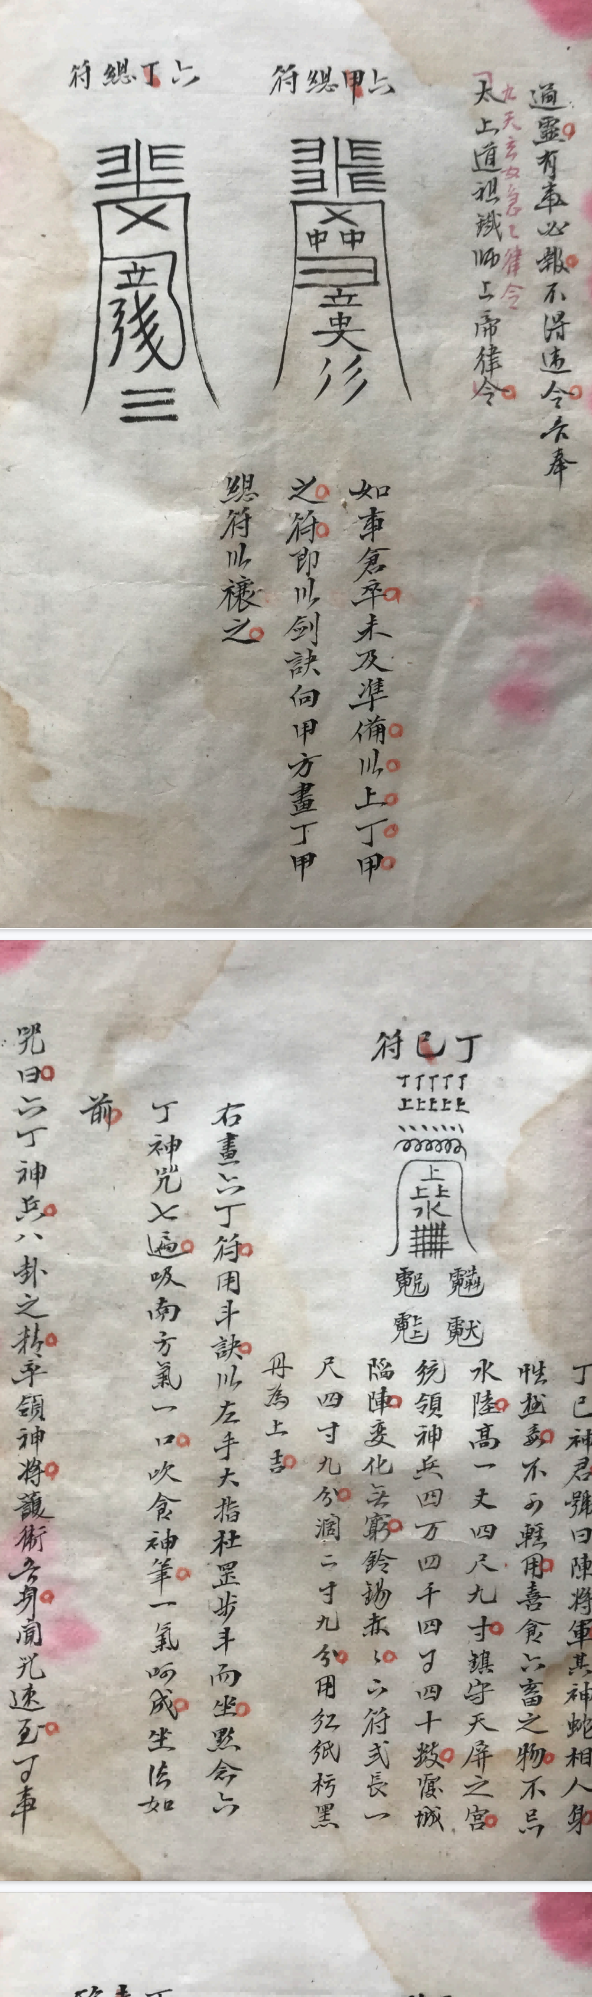 通靈有事必報不得違令吾奉
九天玄女急急律令
太上道祖鐵師上帝律令
六甲總符
六丁總符
如事倉卒未及準備以上丁甲
之符即以劍訣向甲方畫丁甲
總符以禳之
丁巳符
丁巳神君號曰陳將軍其神蛇相人身
性 不可輕用喜食六畜之物不忌
水陸高一丈四尺九寸鎮守天屏之宮
統領神兵四万四千四百四十 城
陷陣變化無窮鈴錫赤 符式長一
尺四寸九分濶二寸九分用紅紙 黑
丹為上吉
右畫六丁符用斗訣以左手大指 罡步斗而坐默念六
丁神咒七遍吸南方氣一口吹食神筆一氣呵成坐法如
前
咒曰六丁神兵八卦之精 領神將護衛吾身聞咒速至 事